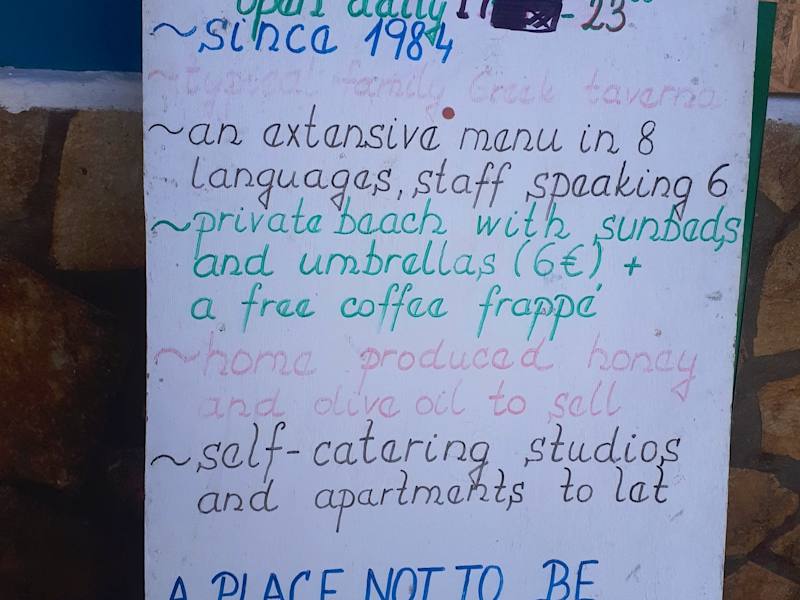 open daily 17 - 23⁰⁰
~since 1984
~typical family Greek taverna
~an extensive menu in 8
languages, staff speaking 6
~private beach with sunbeds
and umbrellas (6€) +
a free coffee frappé
~home produced honey
and olive oil to sell
~self-catering studios
and apartments to let
A PLACE NOT TO BE